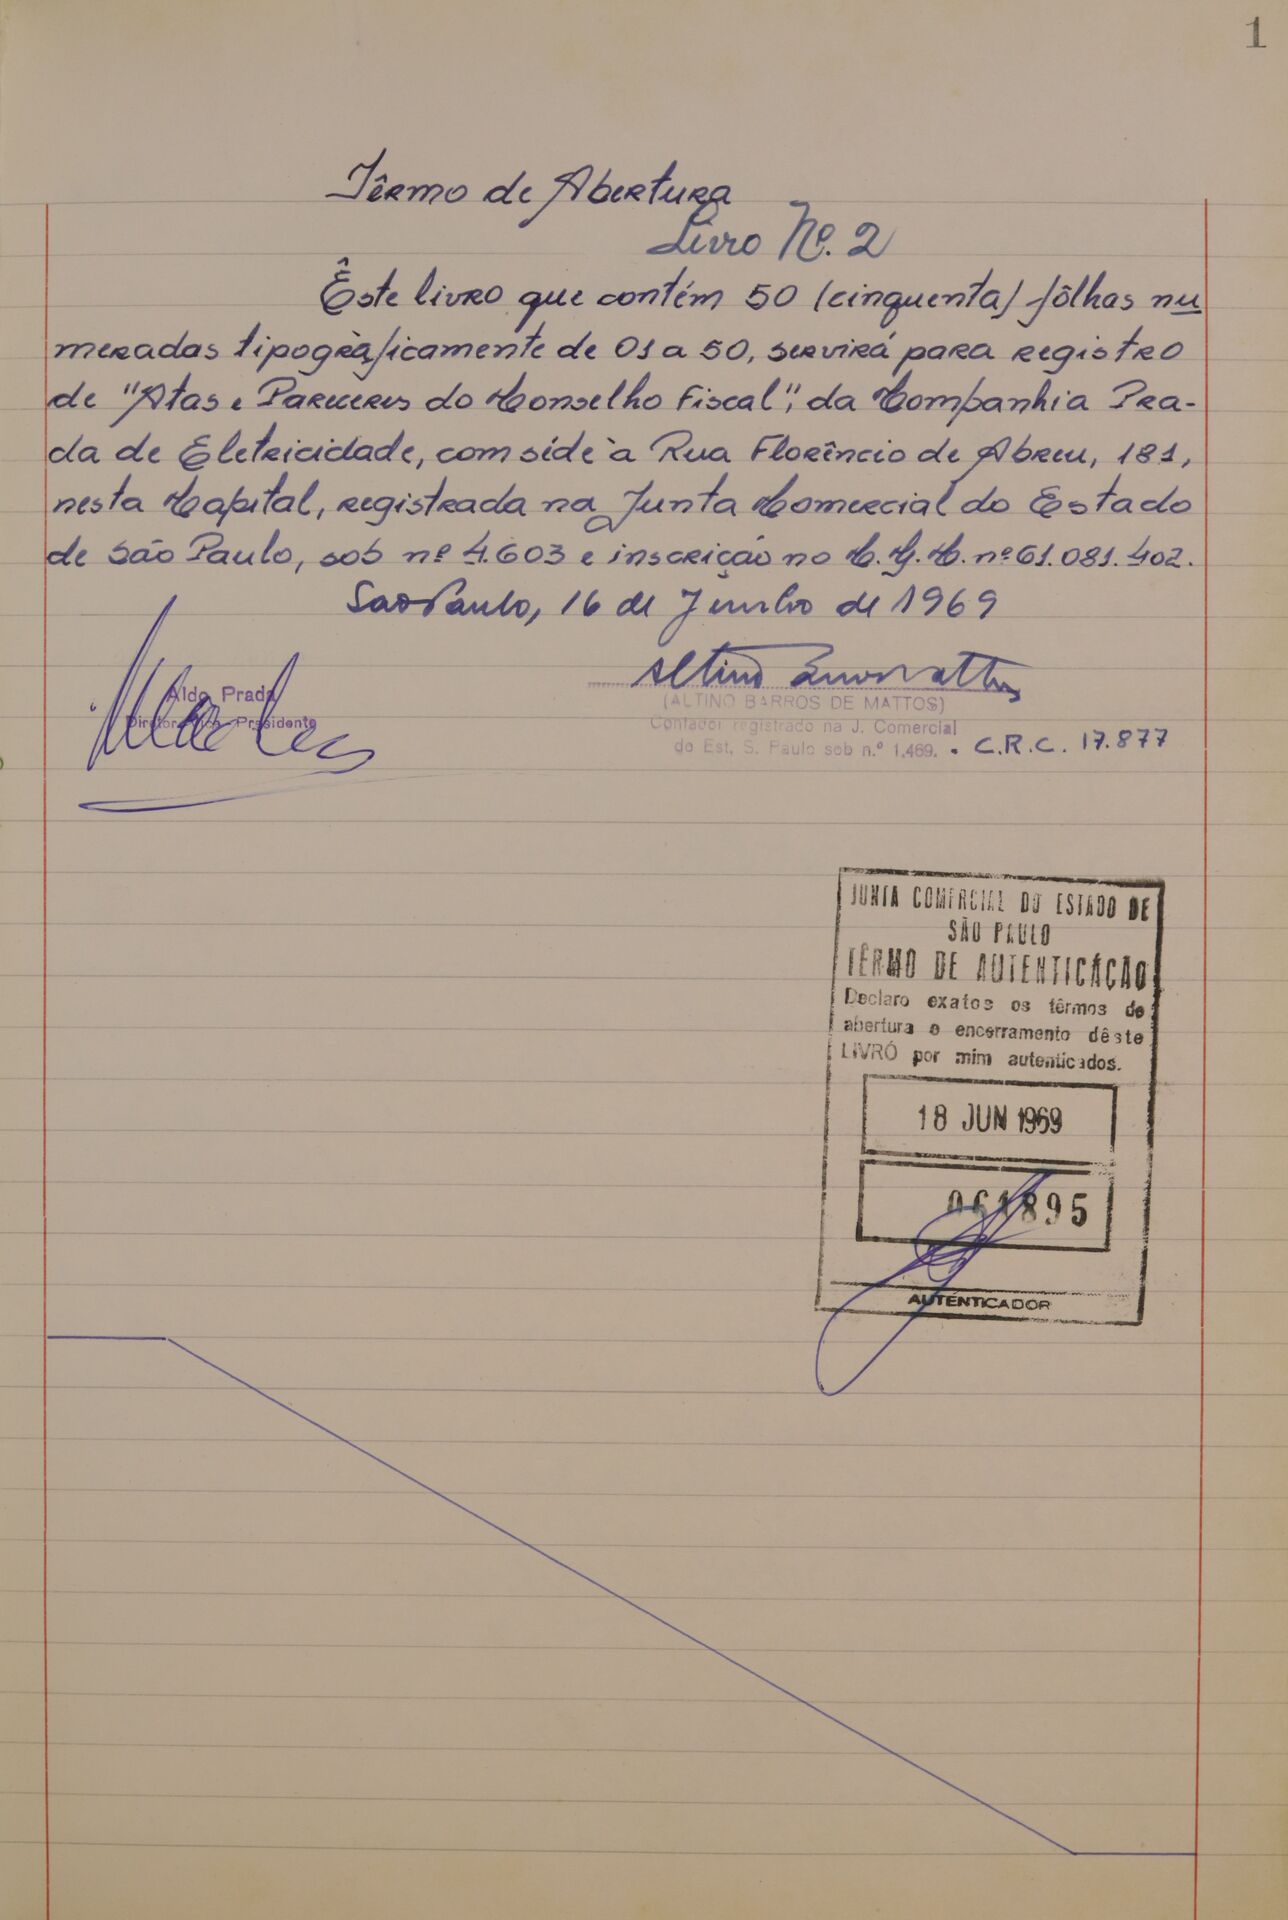 1
Têrmo de Abertura
Livro Nº. 2
Êste livro que contém 50 (cinquenta) fôlhas nu
meradas tipogràficamente de 01 a 50, servirá para registro
de "Atas e Pareceres do Conselho Fiscal", da Companhia Pra-
da de Eletricidade, com séde à Rua Florêncio de Abreu, 181,
nesta Capital, registrada na Junta Comercial do Estado
de São Paulo, sob nº 4.603 e inscrição no C.G.C. nº 61.081.402.
Sao Paulo, 16 de Junho de 1969
Aldo Prada
Diretor Vice-Presidente
Altino Barros Mattos
(ALTINO BARROS DE MATTOS)
Contador registrado na J. Comercial
do Est. S. Paulo sob n.º 1,469. . C.R.C. 17.877
JUNTA COMERCIAL DO ESTADO DE
SÃO PAULO
TÊRMO DE AUTENTICAÇÃO
Declaro exatos os têrmos de
abertura e encerramento dêste
LIVRO por mim autenticados.
18 JUN 1969
061895
AUTENTICADOR